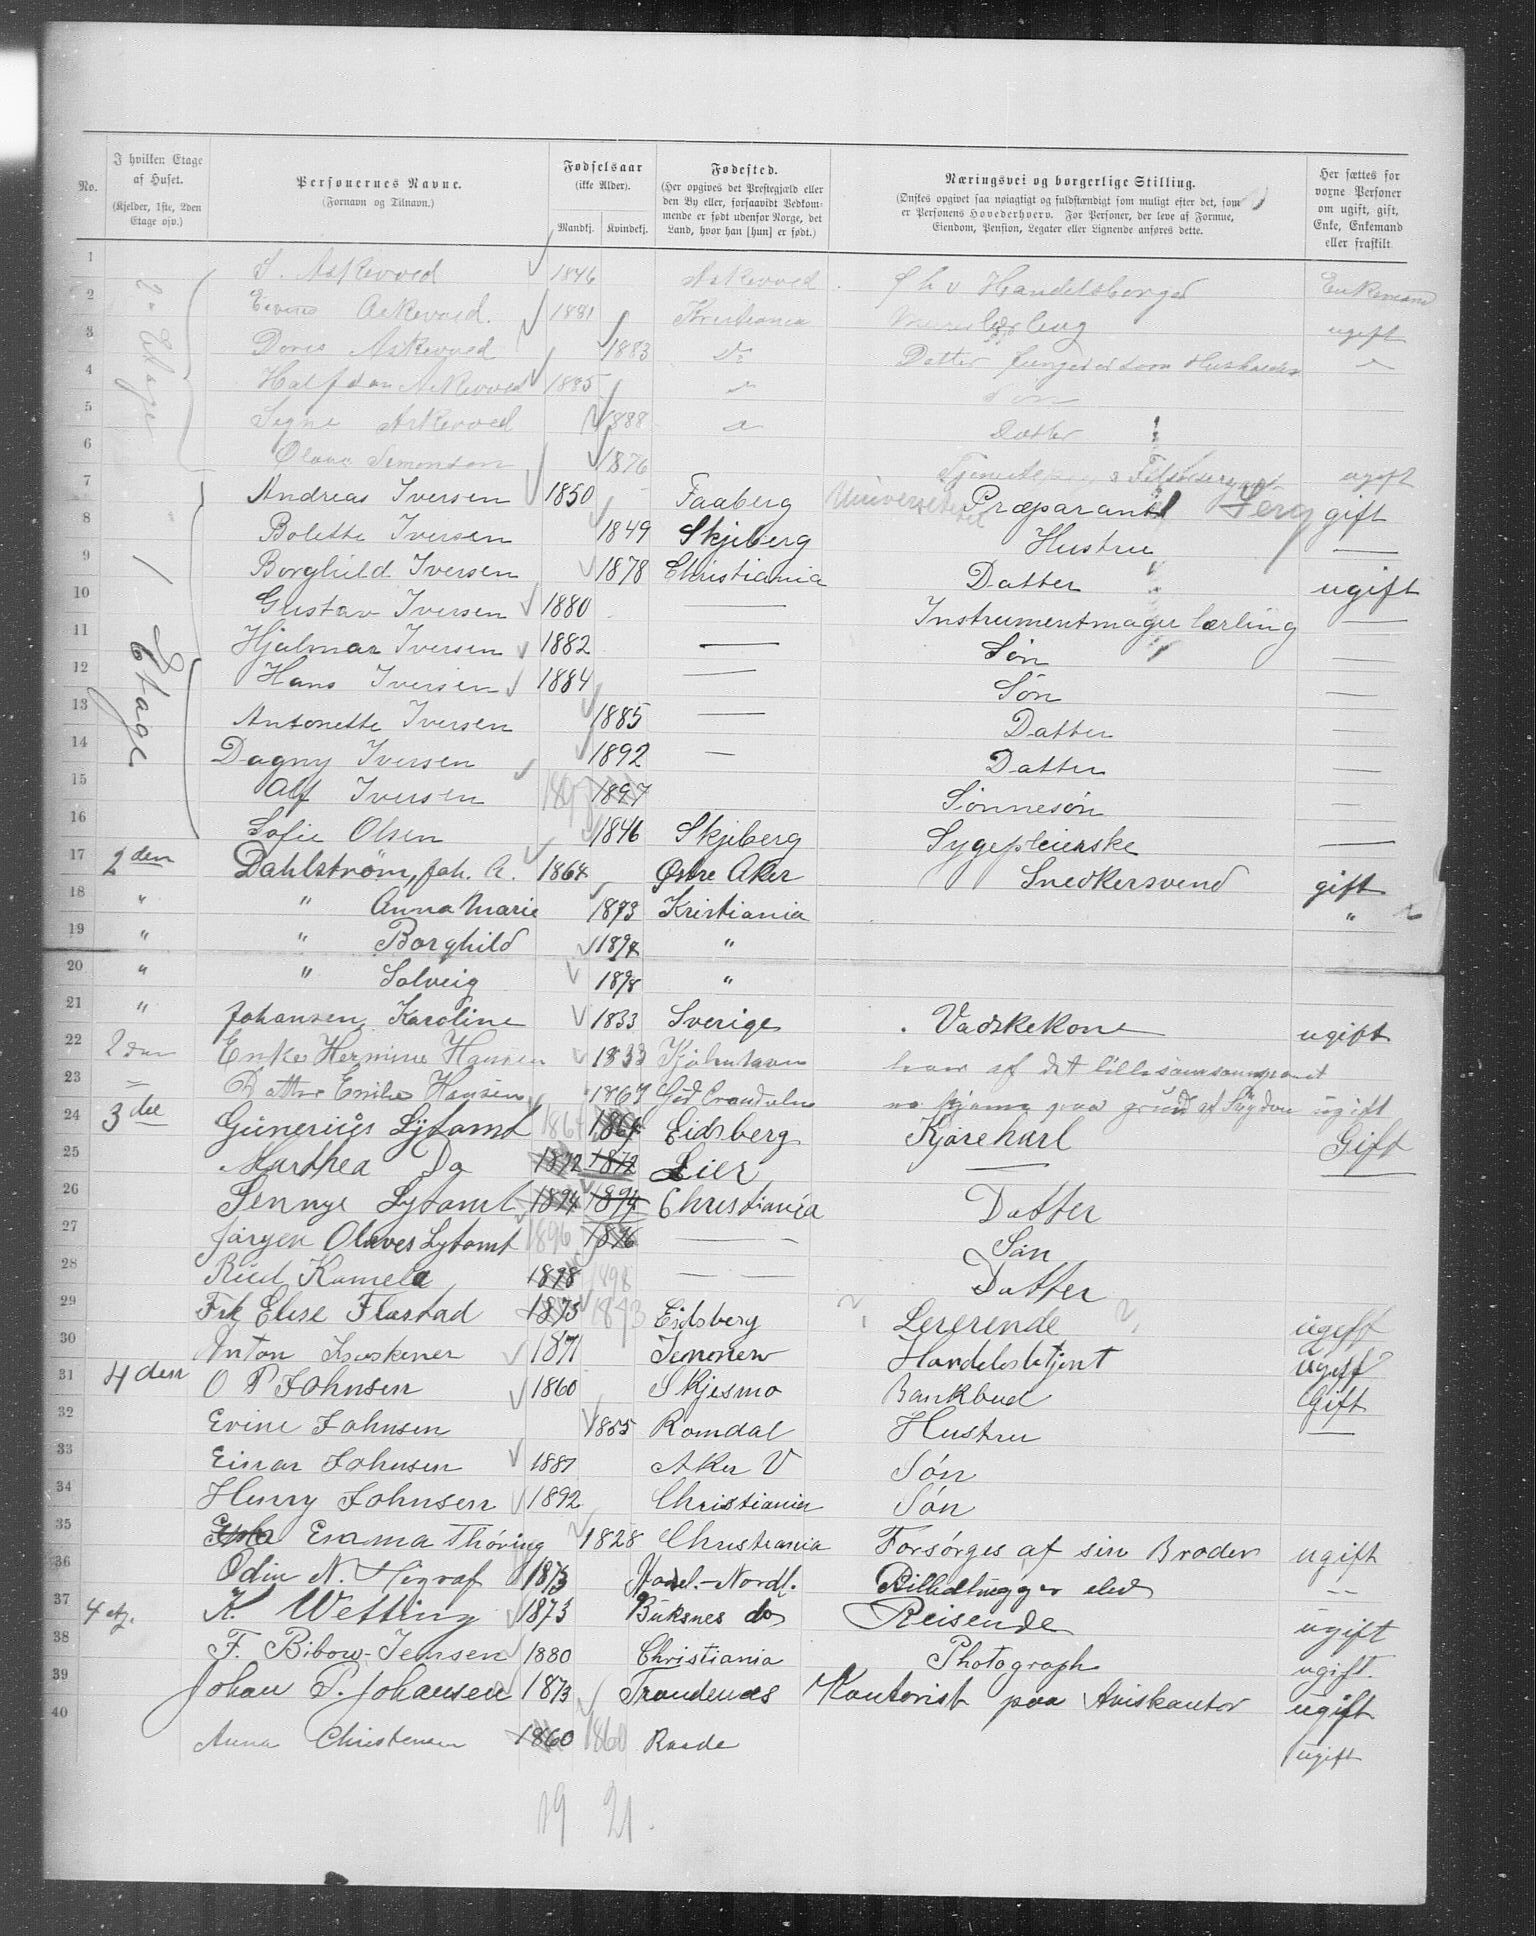 No.
I hvilken Etage af Huset.
(Kjelder, 1ste, 2den Etage osv.)
Personernes Navne.
(Fornavn og Tilnavn.)
Fødselsaar
(ikke Alder).
Mandkj. Kvindekj.
Fødested.
(Her opgives det Prestegjæld eller den By eller, forsaavidt Vedkommende er født udenfor Norge, det Land, hvor han [hun] er født.)
Næringsvei og borgerlige Stilling.
(Ønskes opgivet saa nøiagtigt og fuldstændigt som muligt efter det, som er Personens Hovederhverv. For Personer, der leve af Formue, Eiendom, Pension, Legater eller Lignende anføres dette.
Her sættes for voxne Personer om ugift, gift, Enke, Enkemand eller fraskilt.
1 2. Etage S. Askevold 1846 Askevold f h v Handelsborger Enkemand
2 Askevold 1881 Kristiania ugift
3 Doris Askevold 1883 Do Datter som "
4 Halfdan Askevold 1885 " Søn
5 Signe Askevold 1888 " Datter
6 Simonsen 1876 ugift
7 1 Etage Andreas Iversen 1850 Faaberg Universitetet Præparant gift
8 Bolette Iversen 1849 Skjeberg Hustru —
9 Borghild Iversen 1878 Christiania Datter ugift
10 Gustav Iversen 1880 — Instrumentmager lærling —
11 Hjalmar Iversen 1882 — Søn —
12 Hans Iversen 1884 — Søn —
13 Antonette Iversen 1885 — Datter —
14 Dagny Iversen 1892 — Datter —
15 Alf Iversen 1897 1897 Sønnesøn —
16 Sofie Olsen 1846 Skjeberg Sygepleierske —
17 2den Dahlstrøm, Joh. A. 1864 Østre Aker Snedkersvend gift
18 " " Anna Marie 1873 Kristiania "
19 " " Borghild 1894 "
20 " " Solveig 1898 "
21 " Johansen, Karoline 1833 Sverige Vadskekone ugift
22 2den Enke Hermine Hansen 1833 Kjøbenhavn af det lille
23 " Datter Hansen 1867 paa grund af ugift
24 3die Gunerius Lytomt 1864 1864 Eidsberg Kjørekarl Gift
25 Marthea Do 1872 1872 Lier — —
26 Jennye Lytomt 1894 1894 Christiania Datter
27 Jørgen Olaves Lytomt 1896 1896 — Søn
28 Kamela 1898 1898 — Datter
29 Frk Elise Flastad 1873 1873 Eidsberg ? Lererende ? ugeff
30 Anton 1871 Handelsbetjent ugeff
31 4den O P Johnsen 1860 Skjesmo Bankbud Gift
32 Evine Johnsen 1855 Romdal Hustru —
33 Einar Johnsen 1887 Aker V Søn
34 Henry Johnsen 1892 Christiania Søn
35 Emma Thøring 1828 Christiania Forsørges af sin Broder ugift
36 Odin N. 1873 Hadsel.-Nordl. Billedhugger elev — —
37 4 etg. K. Wetting 1873 Buksnes do Reisende ugift
38 F. Bibow-Jensen 1880 Christiania Photograph ugift.
39 Johan P. Johansen 1873 Trondenæs Kontorist paa Aviskontor ugift
40 Anna Christensen 1860 1860 Raade ugift
19 21.